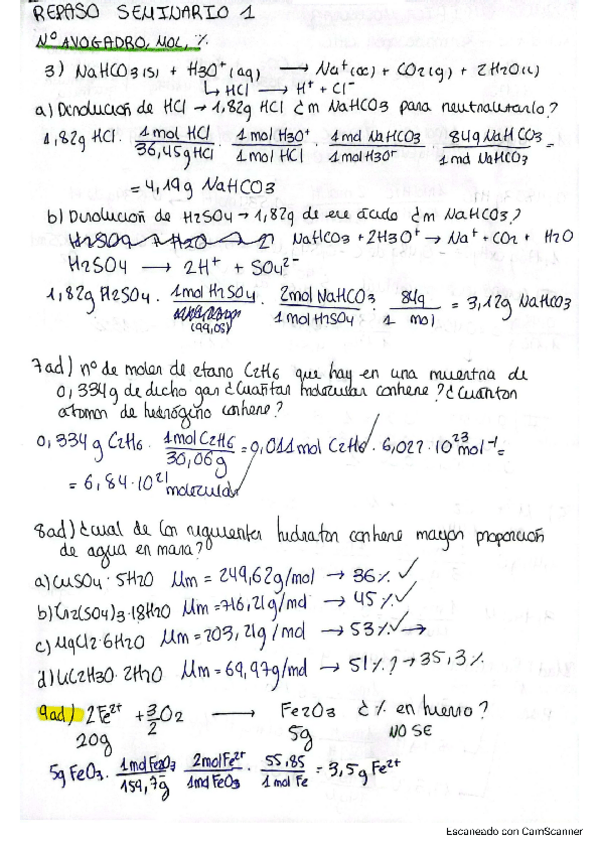 REPASO SEMINARIO 1
Nº AVOGADRO, MOL, %
3) NaHCO3(s) + H3O⁺(aq) → Na⁺(ac) + CO2(g) + 2H2O(l)
↳ HCl → H⁺ + Cl⁻
a) Disolución de HCl → 1,82g HCl ¿m NaHCO3 para neutralizarlo?
1,82g HCl · 1 mol HCl / 36,45g HCl · 1 mol H3O⁺ / 1 mol HCl · 1 mol NaHCO3 / 1 mol H3O⁺ · 84g NaHCO3 / 1 mol NaHCO3 =
= 4,19g NaHCO3
b) Disolución de H2SO4 → 1,82g de ese ácido ¿m NaHCO3?
NaHCO3 + 2H3O⁺ → Na⁺ + CO2 + H2O
H2SO4 → 2H⁺ + SO4²⁻
1,82g H2SO4 · 1 mol H2SO4 / (99,08) · 2 mol NaHCO3 / 1 mol H2SO4 · 84g / 1 mol = 3,12g NaHCO3
7ad) nº de moles de etano C2H6 que hay en una muestra de
0,334g de dicho gas ¿Cuántas moléculas contiene? ¿Cuántos
átomos de hidrógeno contiene?
0,334g C2H6 · 1 mol C2H6 / 30,06g = 0,011 mol C2H6 · 6,022·10²³ mol⁻¹ =
= 6,84·10²¹ moléculas
8ad) ¿cuál de los siguientes hidratos contiene mayor proporción
de agua en masa?
a) CuSO4·5H2O Mm = 249,62g/mol → 36% ✓
b) Cr2(SO4)3·18H2O Mm = 716,21g/mol → 45% ✓
c) MgCl2·6H2O Mm = 203,21g/mol → 53% ✓ →
d) LiC2H3O·2H2O Mm = 69,97g/mol → 51%? → 35,3%
9ad) 2Fe²⁺ + 3/2 O2 → Fe2O3 ¿% en hierro?
20g 5g NO SE
5g FeO3 · 1 mol Fe2O3 / 159,7g · 2 mol Fe²⁺ / 1 mol FeO3 · 55,85 / 1 mol Fe = 3,5g Fe²⁺
Escaneado con CamScanner